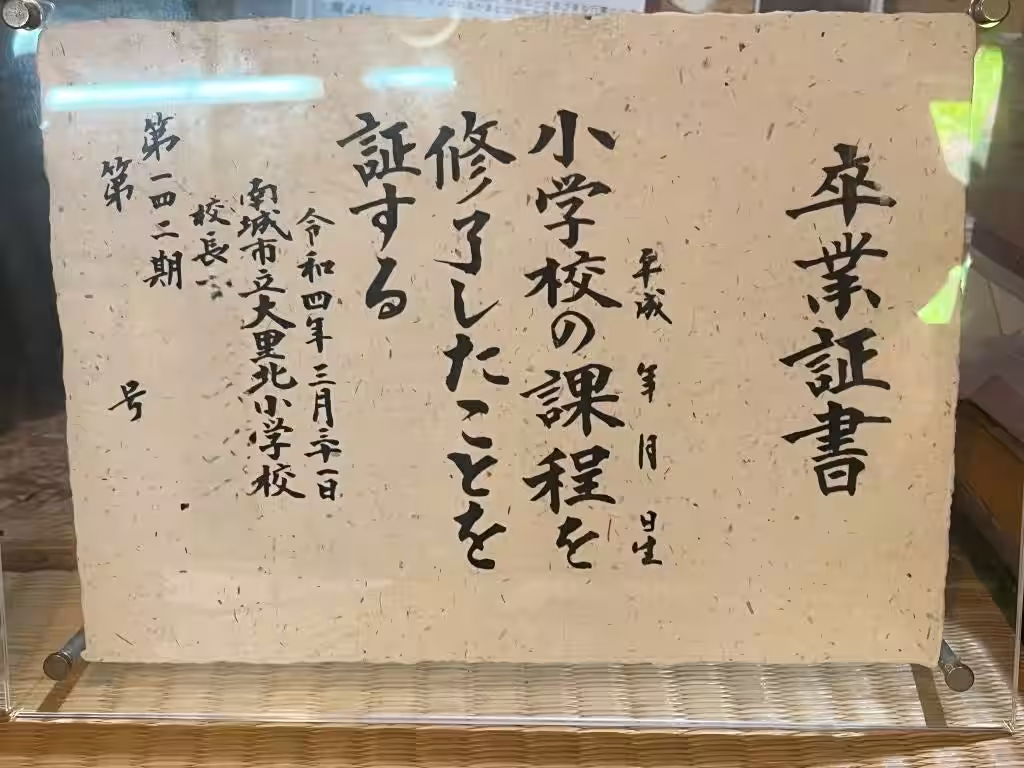 卒業証書
平成　年　月　日生
小学校の課程を
修了したことを
証する
令和四年三月二十一日
南城市立大里北小学校
校長
第一四二期
第　号